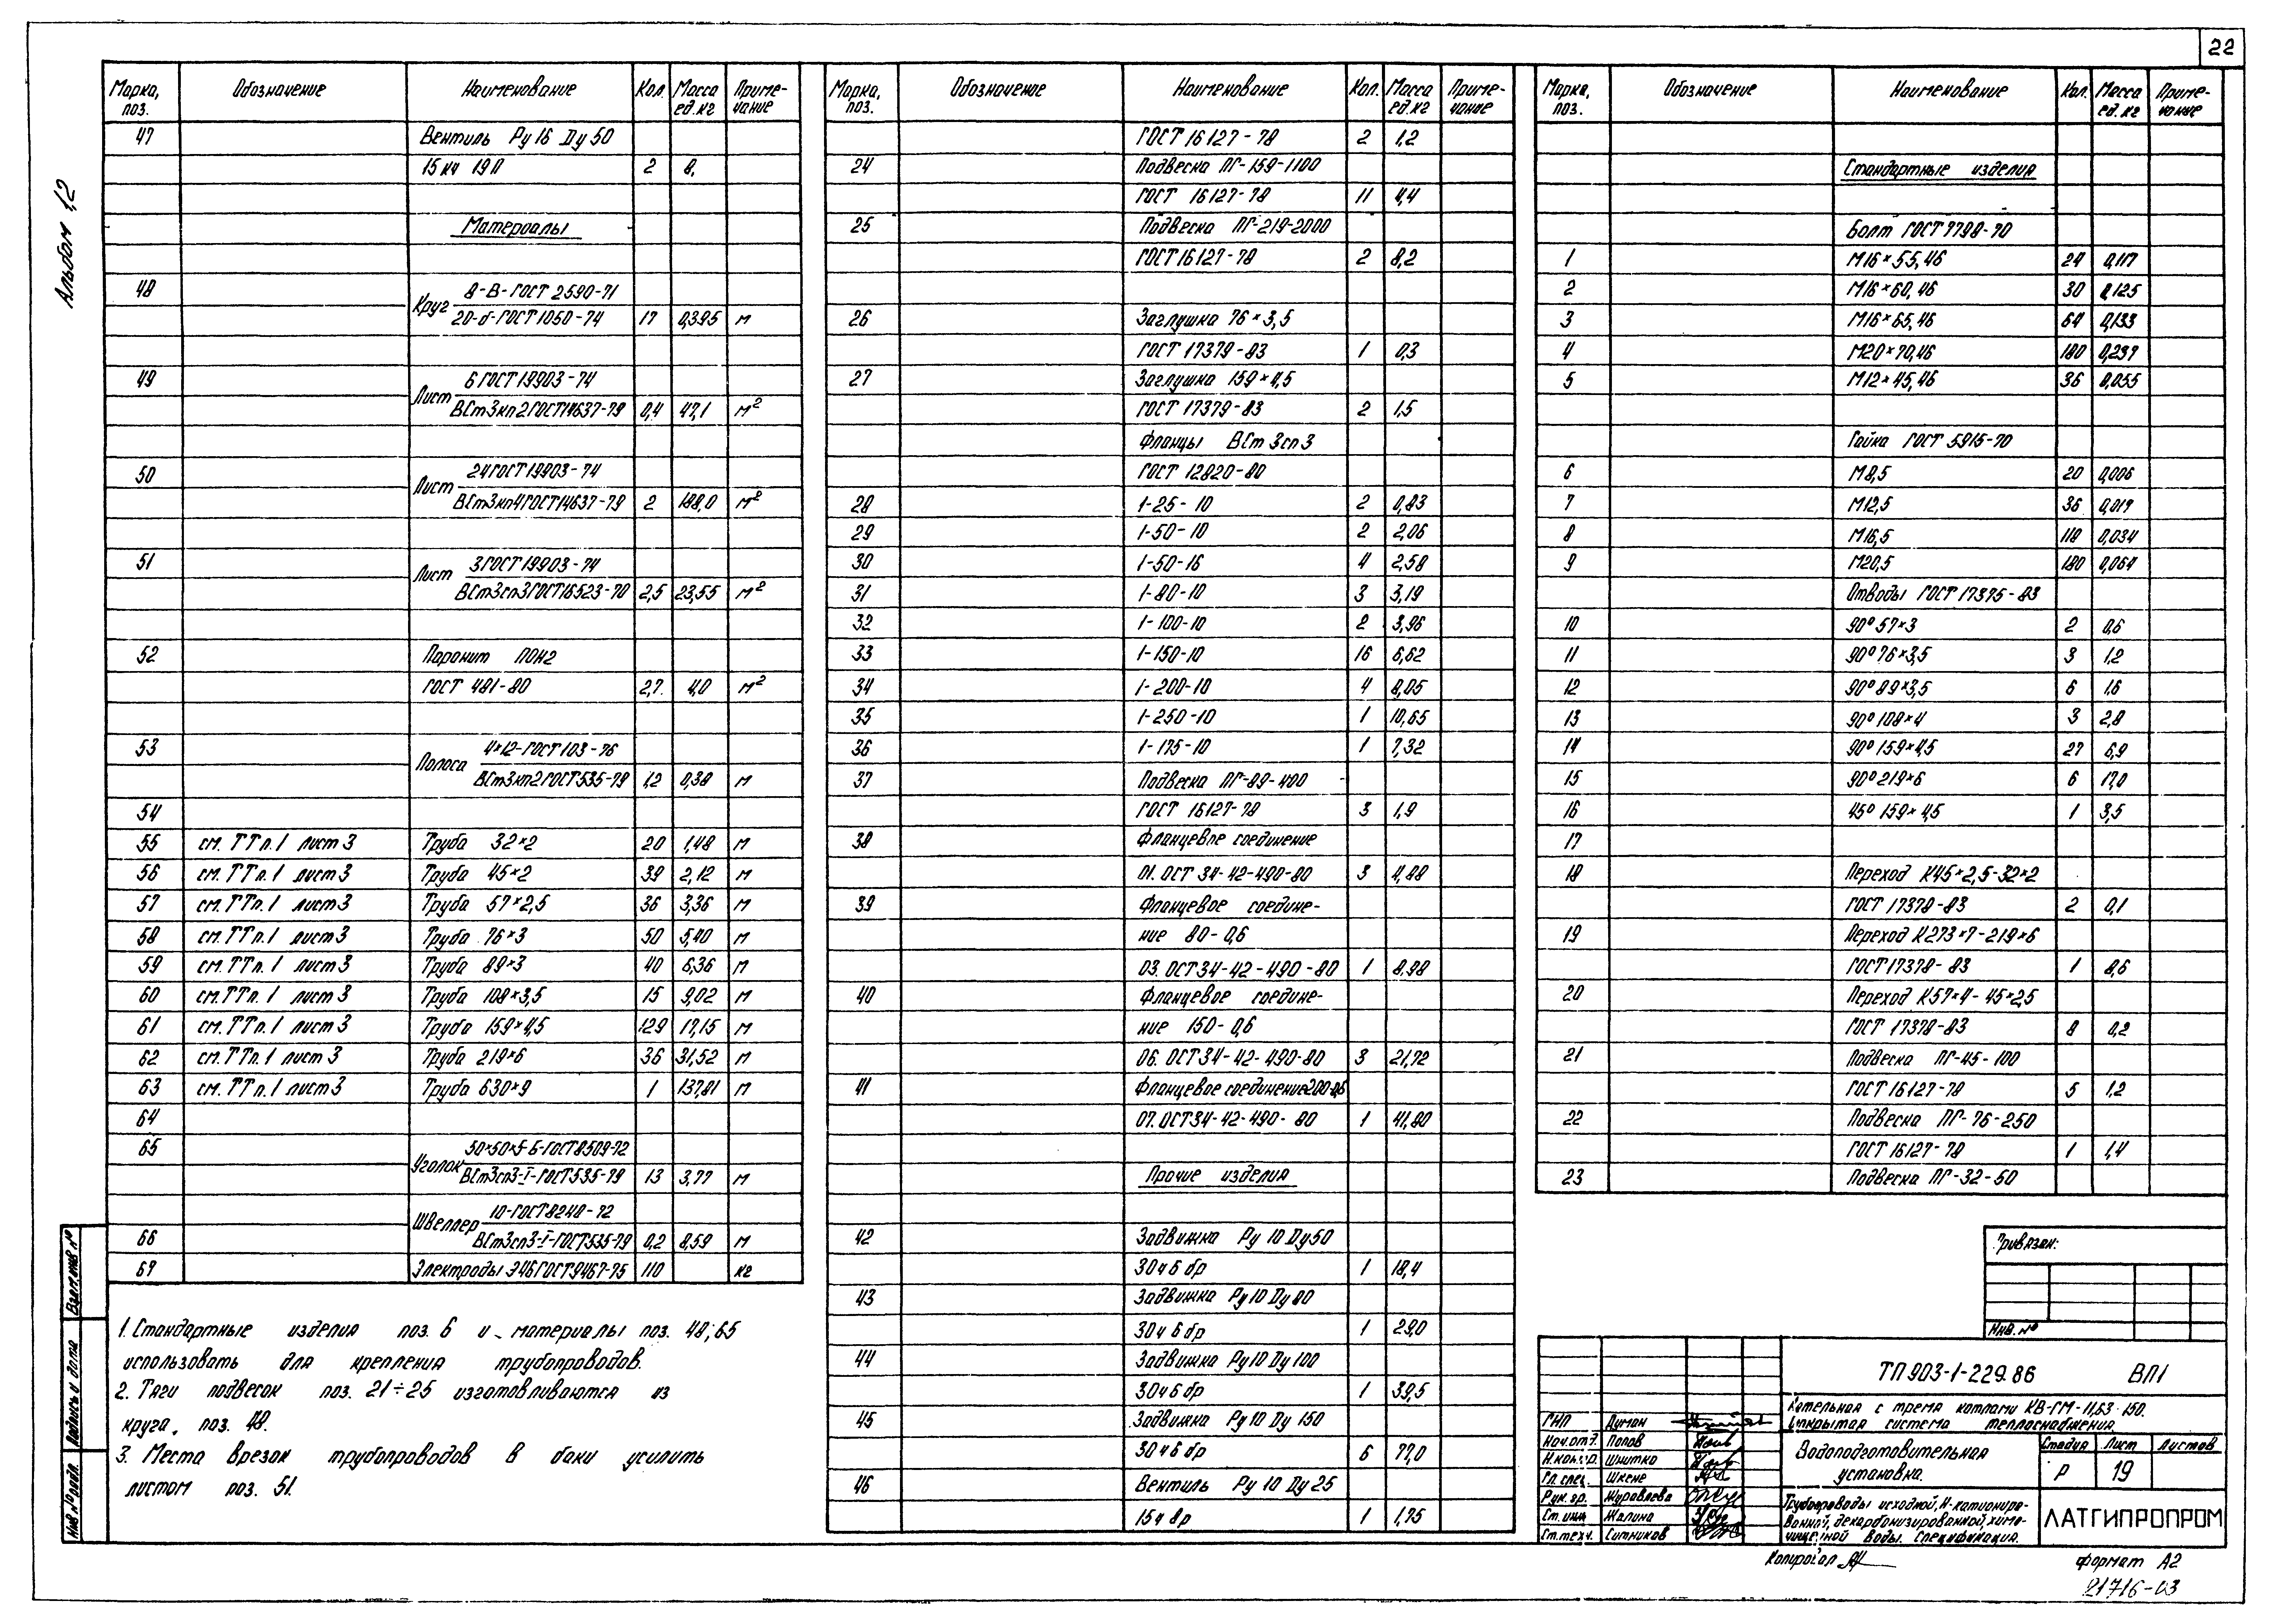 22
Альбом 1,2
Марка, поз. Обозначение Наименование Кол Масса ед. кг Примечание
47 Вентиль Ру 16 Ду 50
15 кч 19 П 2 8,
Материалы
48 Круг 8-В-ГОСТ 2590-71
20-б-ГОСТ 1050-74 17 0,395 м
49 Лист 6 ГОСТ 19903-74
ВСт3кп2 ГОСТ 14637-79 0,4 47,1 м²
50 Лист 24 ГОСТ 19903-74
ВСт3кп4 ГОСТ 14637-79 2 188,0 м²
51 Лист 3 ГОСТ 19903-74
ВСт3сп3 ГОСТ 16523-70 2,5 23,55 м²
52 Паронит ПОН2
ГОСТ 481-80 2,7 4,0 м²
53 Полоса 4×12-ГОСТ 103-76
ВСт3кп2 ГОСТ 535-79 1,2 0,38 м
54
55 см. ТТ п. 1 лист 3 Труба 32×2 20 1,48 м
56 см. ТТ п. 1 лист 3 Труба 45×2 39 2,12 м
57 см. ТТ п. 1 лист 3 Труба 57×2,5 36 3,36 м
58 см. ТТ п. 1 лист 3 Труба 76×3 50 5,40 м
59 см. ТТ п. 1 лист 3 Труба 89×3 40 6,36 м
60 см. ТТ п. 1 лист 3 Труба 108×3,5 15 9,02 м
61 см. ТТ п. 1 лист 3 Труба 159×4,5 129 17,15 м
62 см. ТТ п. 1 лист 3 Труба 219×6 36 31,52 м
63 см. ТТ п. 1 лист 3 Труба 630×9 1 137,81 м
64
65 Уголок 50×50×5-Б-ГОСТ 8509-72
ВСт3сп3-I-ГОСТ 535-79 13 3,77 м
Швеллер 10-ГОСТ 8240-72
66 ВСт3сп3-I-ГОСТ 535-79 0,2 8,59 м
67 Электроды Э46 ГОСТ 9467-75 110 кг
1. Стандартные изделия поз. 6 и материалы поз. 48; 65
использовать для крепления трубопроводов.
2. Тяги подвесок поз. 21÷25 изготовливаются из
круга, поз. 48.
3. Места врезок трубопроводов в баки усилить
листом поз. 51.
Марка, поз. Обозначение Наименование Кол. Масса ед. кг Примечание
ГОСТ 16127-78 2 1,2
24 Подвеска ПГ-159-1100
ГОСТ 16127-78 11 4,4
25 Подвеска ПГ-219-2000
ГОСТ 16127-78 2 8,2
26 Заглушка 76×3,5
ГОСТ 17379-83 1 0,3
27 Заглушка 159×4,5
ГОСТ 17379-83 2 1,5
Фланцы ВСт 3сп3
ГОСТ 12820-80
28 1-25-10 2 0,83
29 1-50-10 2 2,06
30 1-50-16 4 2,58
31 1-80-10 3 3,19
32 1-100-10 2 3,96
33 1-150-10 16 6,62
34 1-200-10 4 8,05
35 1-250-10 1 10,65
36 1-175-10 1 7,32
37 Подвеска ПГ-89-400
ГОСТ 16127-78 3 1,9
38 Фланцевое соединение
01. ОСТ 34-42-490-80 3 4,88
39 Фланцевое соедине-
ние 80-0,6
03. ОСТ 34-42-490-80 1 8,98
40 Фланцевое соедине-
ние 150-0,6
06. ОСТ 34-42-490-80 3 21,72
41 Фланцевое соединение 200-0,6
07. ОСТ 34-42-490-80 1 41,80
Прочие изделия
42 Задвижка Ру 10 Ду 50
30ч 6 бр 1 18,4
43 Задвижка Ру 10 Ду 80
30ч 6 бр 1 29,0
44 Задвижка Ру 10 Ду 100
30ч 6 бр 1 39,5
45 Задвижка Ру 10 Ду 150
30ч 6 бр 6 77,0
46 Вентиль Ру 10 Ду 25
15ч 8р 1 1,75
Марка, поз. Обозначение Наименование Кол. Масса ед. кг Примечание
Стандартные изделия
Болт ГОСТ 7798-70
1 М16×55,46 24 0,117
2 М16×60,46 30 0,125
3 М16×65,46 64 0,133
4 М20×70,46 180 0,237
5 М12×45,46 36 0,055
Гайка ГОСТ 5915-70
6 М8,5 20 0,006
7 М12,5 36 0,017
8 М16,5 118 0,034
9 М20,5 180 0,064
Отводы ГОСТ 17375-83
10 90° 57×3 2 0,6
11 90° 76×3,5 3 1,2
12 90° 89×3,5 6 1,6
13 90° 108×4 3 2,8
14 90° 159×4,5 27 6,9
15 90° 219×6 6 17,0
16 45° 159×4,5 1 3,5
17
18 Переход К45×2,5-32×2
ГОСТ 17378-83 2 0,1
19 Переход К273×7-219×6
ГОСТ 17378-83 1 8,6
20 Переход К57×4-45×2,5
ГОСТ 17378-83 8 0,2
21 Подвеска ПГ-45-100
ГОСТ 16127-78 5 1,2
22 Подвеска ПГ-76-250
ГОСТ 16127-78 1 1,4
23 Подвеска ПГ-32-50
Привязан:
Инв. №
ТП 903-1-229.86 ВП1
Котельная с тремя котлами КВ-ГМ-11,63-150.
Открытая система теплоснабжения.
ГИП Думан
Нач. отд. Попов
Н. контр. Шнитко
Гл. спец. Шкене
Рук. гр. Журавлева
Ст. инж Жалина
Ст. техн. Ситников
Водоподготовительная установка.
Стадия Лист Листов
Р 19
Трубопроводы исходной, Н-катиониро-
ванной, декарбонизированной, хими-
чищенной воды. Спецификация.
ЛАТГИПРОПРОМ
Копировал
Формат А2
21716-03
Взам. инв №
Подпись и дата
Инв № подл.